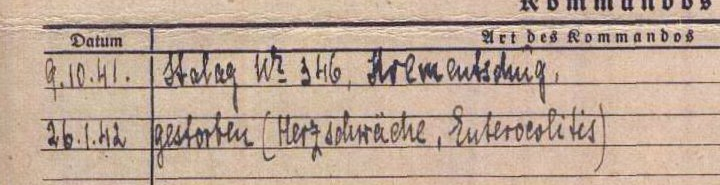 Kommandos
Datum Art des Kommandos
9.10.41. Stalag Nr 346, Krementschug,
26.1.42 gestorben (Herzschwäche, Enterocolitis)